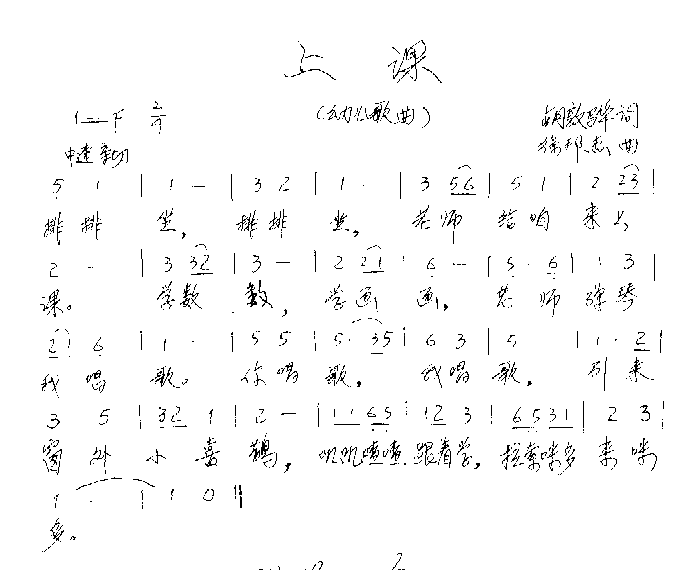 上 课
1=F 2/4 (幼儿歌曲) 胡敦骅词
中速 亲切 徐邦杰曲
5 1 | 1 - | 3 2 | 1 · | 3 56 | 5 1 | 2 23 |
排排 坐, 排排 坐, 老师 给咱 来上
2 - | 3 32 | 3 - | 2 21 | 6 - | 5 · 6 | 1 3 |
课。 学数 数, 学画 画, 老 师 弹琴
2 6 | 1 · | 5 5 | 5 · 35 | 6 3 | 5 | 1 · 2 |
我 唱 歌。 你唱 歌, 我唱 歌, 引来
3 5 | 32 1 | 2 - | 11 65 | 12 3 | 6531 | 2 3 |
窗外 小喜 鹊, 叽叽喳喳 跟着学, 拉索咪多 来咪
1 · | 1 0 ||
多。